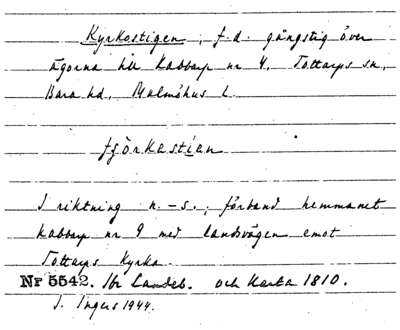 Kyrkostigen, f.d. gångstig över
ägorna till Kabbarp nr 4, Tottarps sn,
Bara hd, Malmöhus l.
I riktning n.-s., förband hemmanet
Kabbarp nr 9 med landsvägen emot
Tottarps Kyrka.
Nr 5542. och Karta 1810.
I. Ingers 1944.